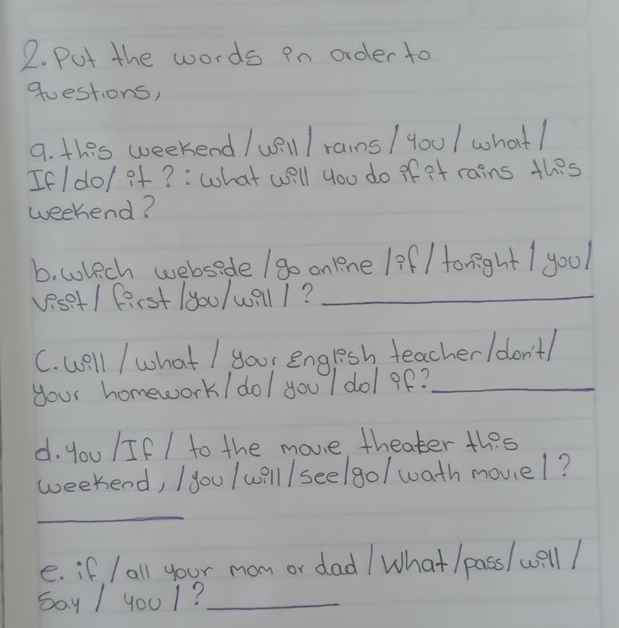 2. Put the words in order to
questions,
a. this weekend / will / rains / you / what /
If / do / it ? : what will you do if it rains this
weekend?
b. which webside / go online / if / tonight / you /
visit / first / you / will / ?
C. will / what / your English teacher / don't /
your homework / do / you / do / if?
d. You / If / to the movie theater this
weekend, / you / will / see / go / wath movie / ?
e. if / all your mom or dad / What / pass / will /
Say / you / ?